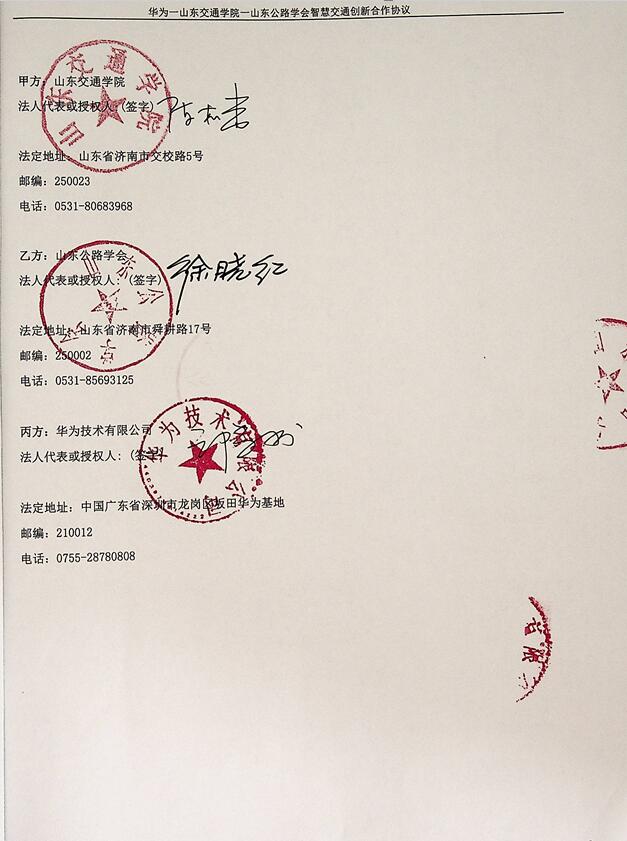 华为—山东交通学院—山东公路学会智慧交通创新合作协议
甲方：山东交通学院
法人代表或授权人：(签字)
法定地址：山东省济南市交校路5号
邮编：250023
电话：0531-80683968
乙方：山东公路学会
法人代表或授权人：(签字) 徐晓红
法定地址：山东省济南市舜耕路17号
邮编：250002
电话：0531-85693125
丙方：华为技术有限公司
法人代表或授权人：(签字)
法定地址：中国广东省深圳市龙岗区坂田华为基地
邮编：210012
电话：0755-28780808
山东交通学院
山东公路学会
华为技术有限公司
有限